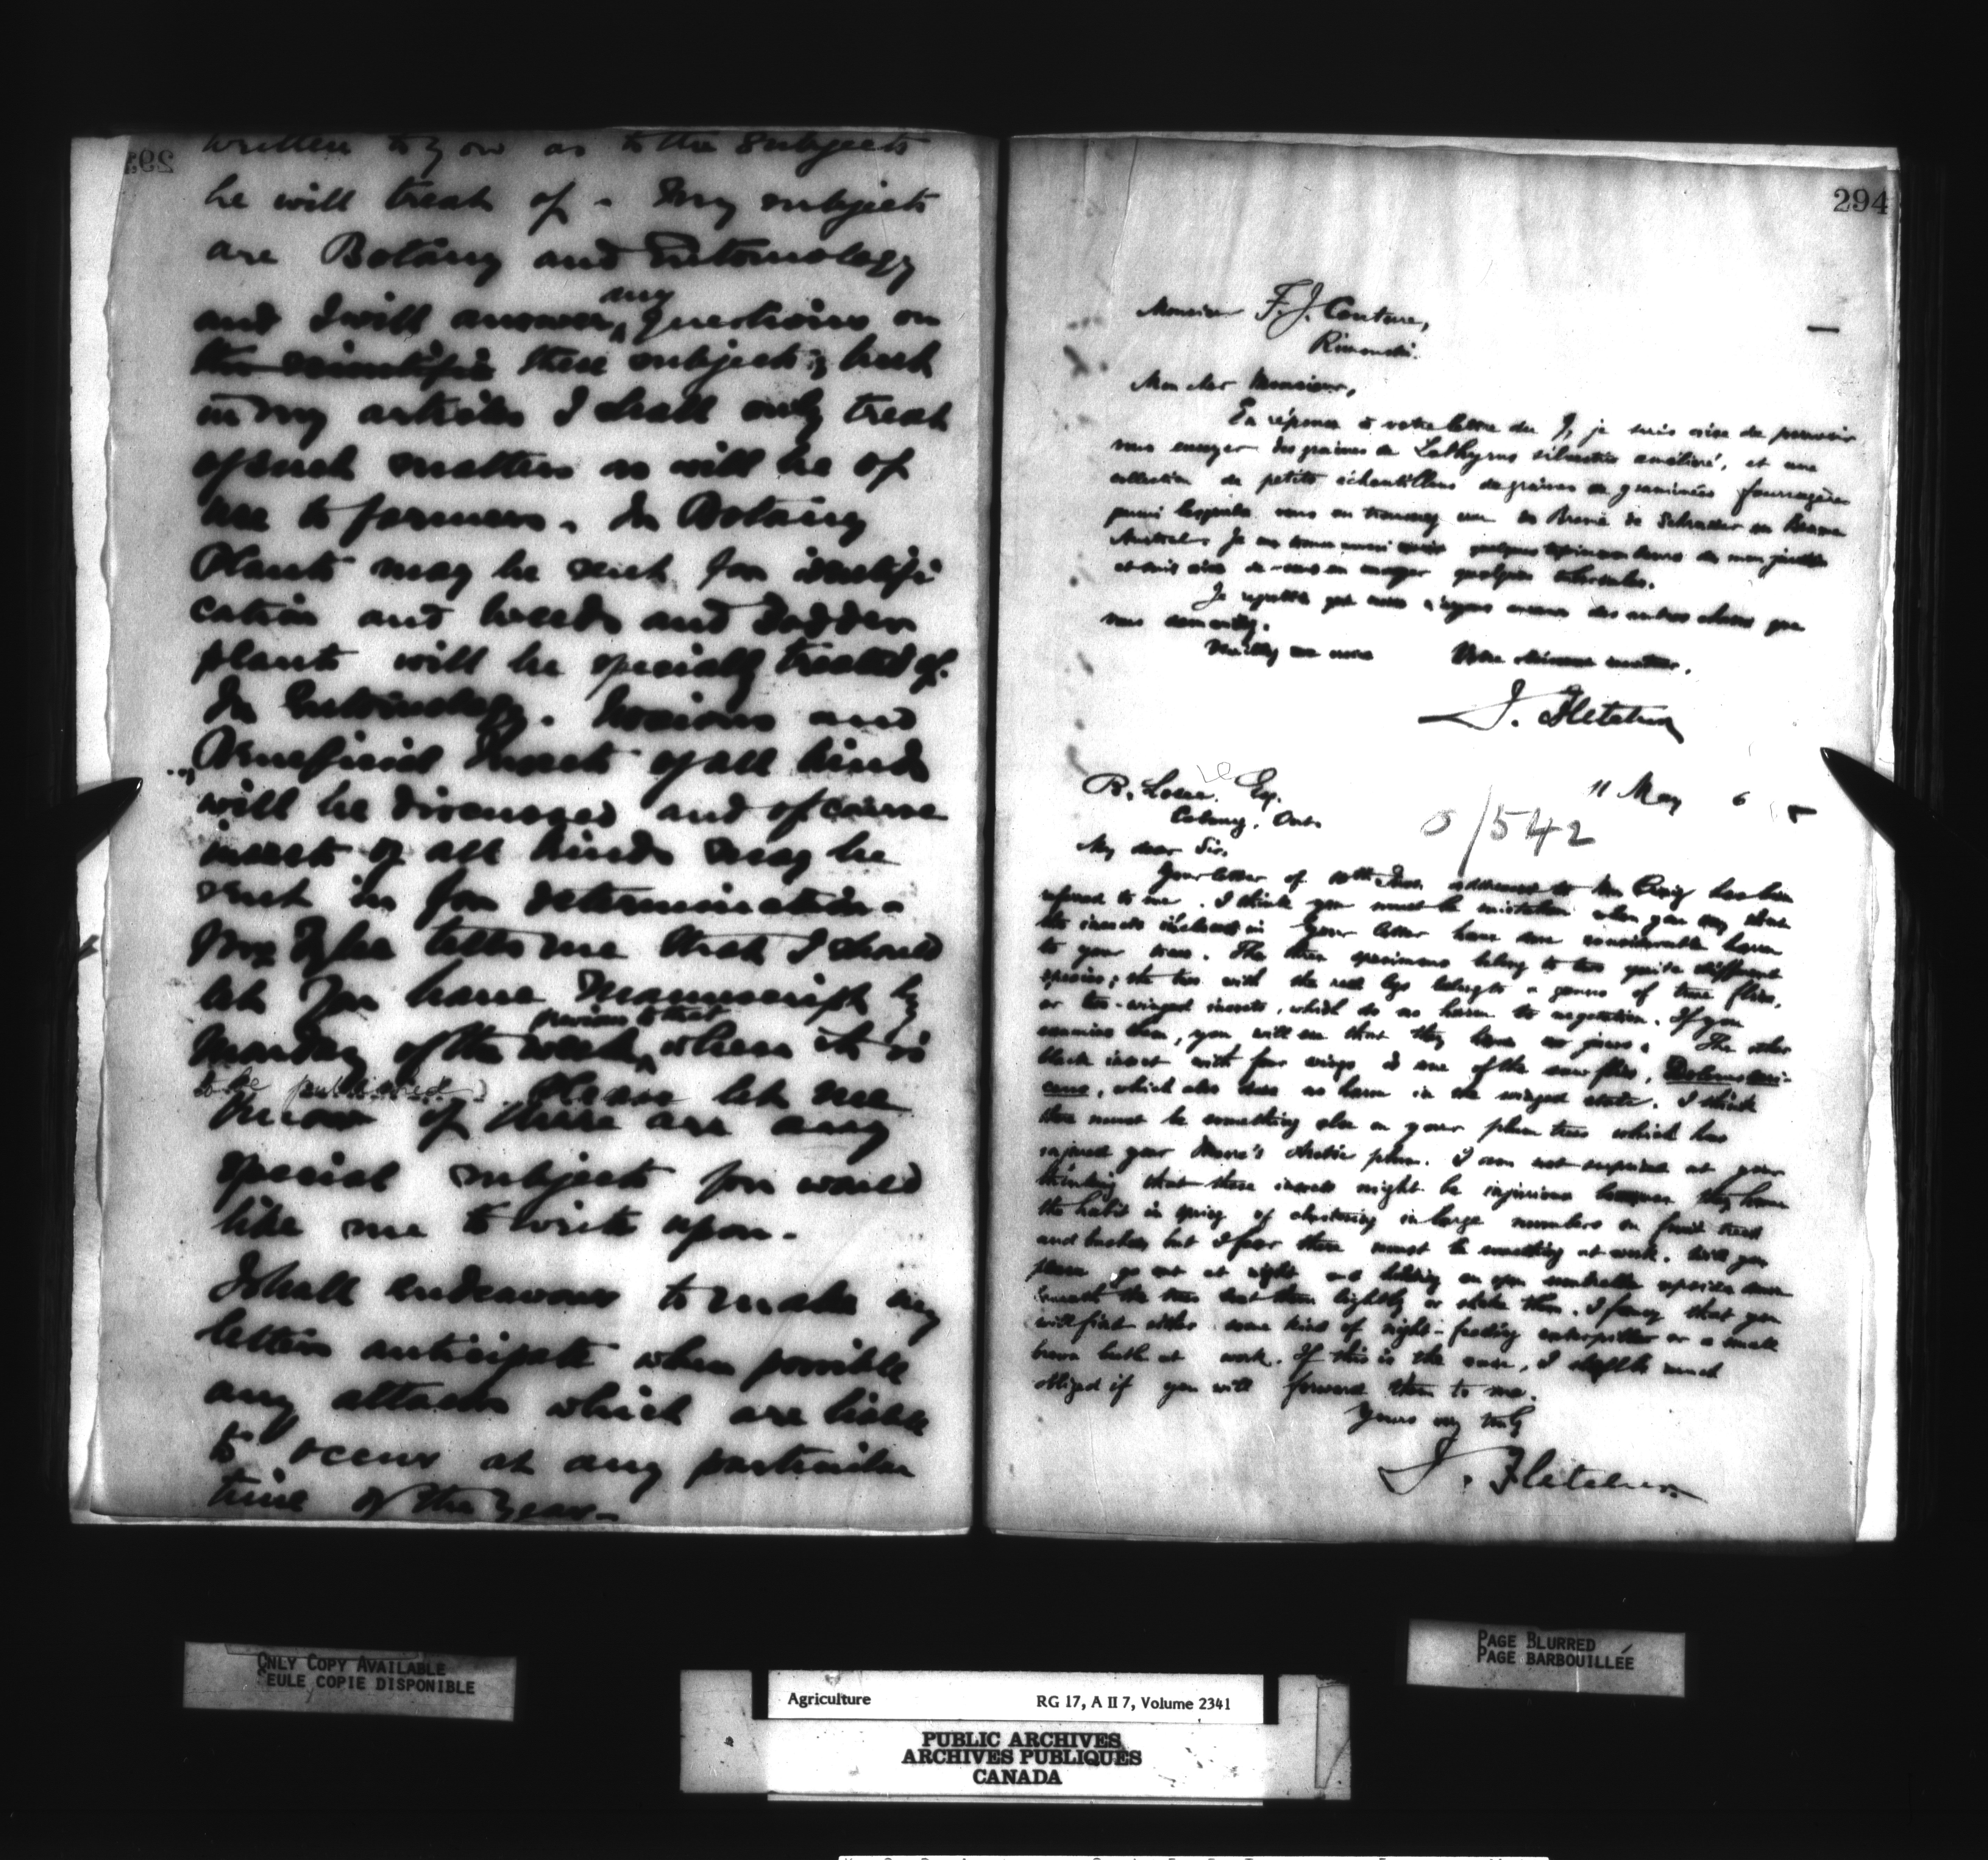 written to you as to the subjects
he will treat of. My subjects
are Botany and Entomology
and I will answer any questions on
the scientific these subjects; but
in my articles I shall only treat
of such matters as will be of
use to farmers. In Botany
Plants may be sent for identifi
cation and weeds and fodder
plants will be specially treated of.
In Entomology. Noxious and
Beneficial Insects of all kinds
will be discussed and of course
insects of all kinds may be
sent in for determination.
tells me that I should
let you have Manuscript by
Monday of the week previous to that when it is
to be published. Please let me
know if there are any
special subjects you would
like me to write upon.
I shall endeavour to make my
letters anticipate when possible
any attacks which are liable
to occur at any particular
time of the year.
294
Monsieur F. J. Couture,
Rimouski.
Mon cher Monsieur,
En réponse à votre lettre du 7, je suis aise de pouvoir
vous envoyer des graines de Lathyrus silvestris amélioré, et une
collection de petits échantillons de graines de graminées fourragères
parmi lesquelles vous en trouverez une de Brome de Schrader ou Brome
Je aussi quelques de mon jardin
et suis aise de vous en envoyer quelques tubercules.
Je regrette que nous n'ayons aucune des autres choses que
vous demandez.
Veuillez me croire Votre serviteur,
J. Fletcher
R. Esq. 11 May 6 5
Colony, Ont.
0/542
My dear Sir,
Your letter of 10th Inst. addressed to Mr Craig has been
referred to me. I think you must be mistaken when you say that
the insects inclosed in your letter have done considerable harm
to your trees. The three specimens belong to two quite different
species; the two with the red legs belong to a genus of true flies,
or two-winged insects, which do no harm to vegetation. If you
examine them, you will see that they have no jaws. The other
black insect with four wings is one of the saw flies, Dolerus seri-
ceus, which also does no harm in the winged state. I think
there must be something else on your plum trees which has
injured your Moore's Arctic plum. I am not surprised at your
thinking that these insects might be injurious because they have
the habit in spring of clustering in large numbers on fruit trees
and bushes but I fear there must be something at work. Will you
please go out at night and holding an open umbrella upside down
beneath the trees beat them lightly or shake them. I fancy that you
will find either some kind of night-feeding caterpillar or a small
brown beetle at work. If this is the case, I shall be much
obliged if you will forward them to me.
Yours very truly
J. Fletcher.
ONLY COPY AVAILABLE
SEULE COPIE DISPONIBLE
PAGE BLURRED
PAGE BARBOUILLÉE
Agriculture RG 17, A II 7, Volume 2341
PUBLIC ARCHIVES
ARCHIVES PUBLIQUES
CANADA